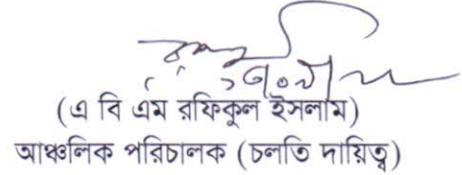 (এ বি এম রফিকুল ইসলাম)
আঞ্চলিক পরিচালক (চলতি দায়িত্ব)